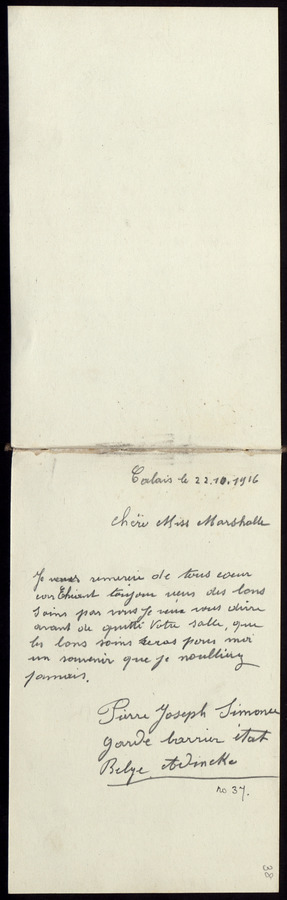 Calais le 22.10.1916
chère Miss Marshalle
Je vous remercie de tous coeur
toujour des bons
soins par vous Je veux vous dire
avant de quitté Votre salle, que
les bons soins seras pour moi
un souvenir que je noublieray
jamais.
Pierre Joseph Simoner
garde barrier état
Belge
no 37.
38